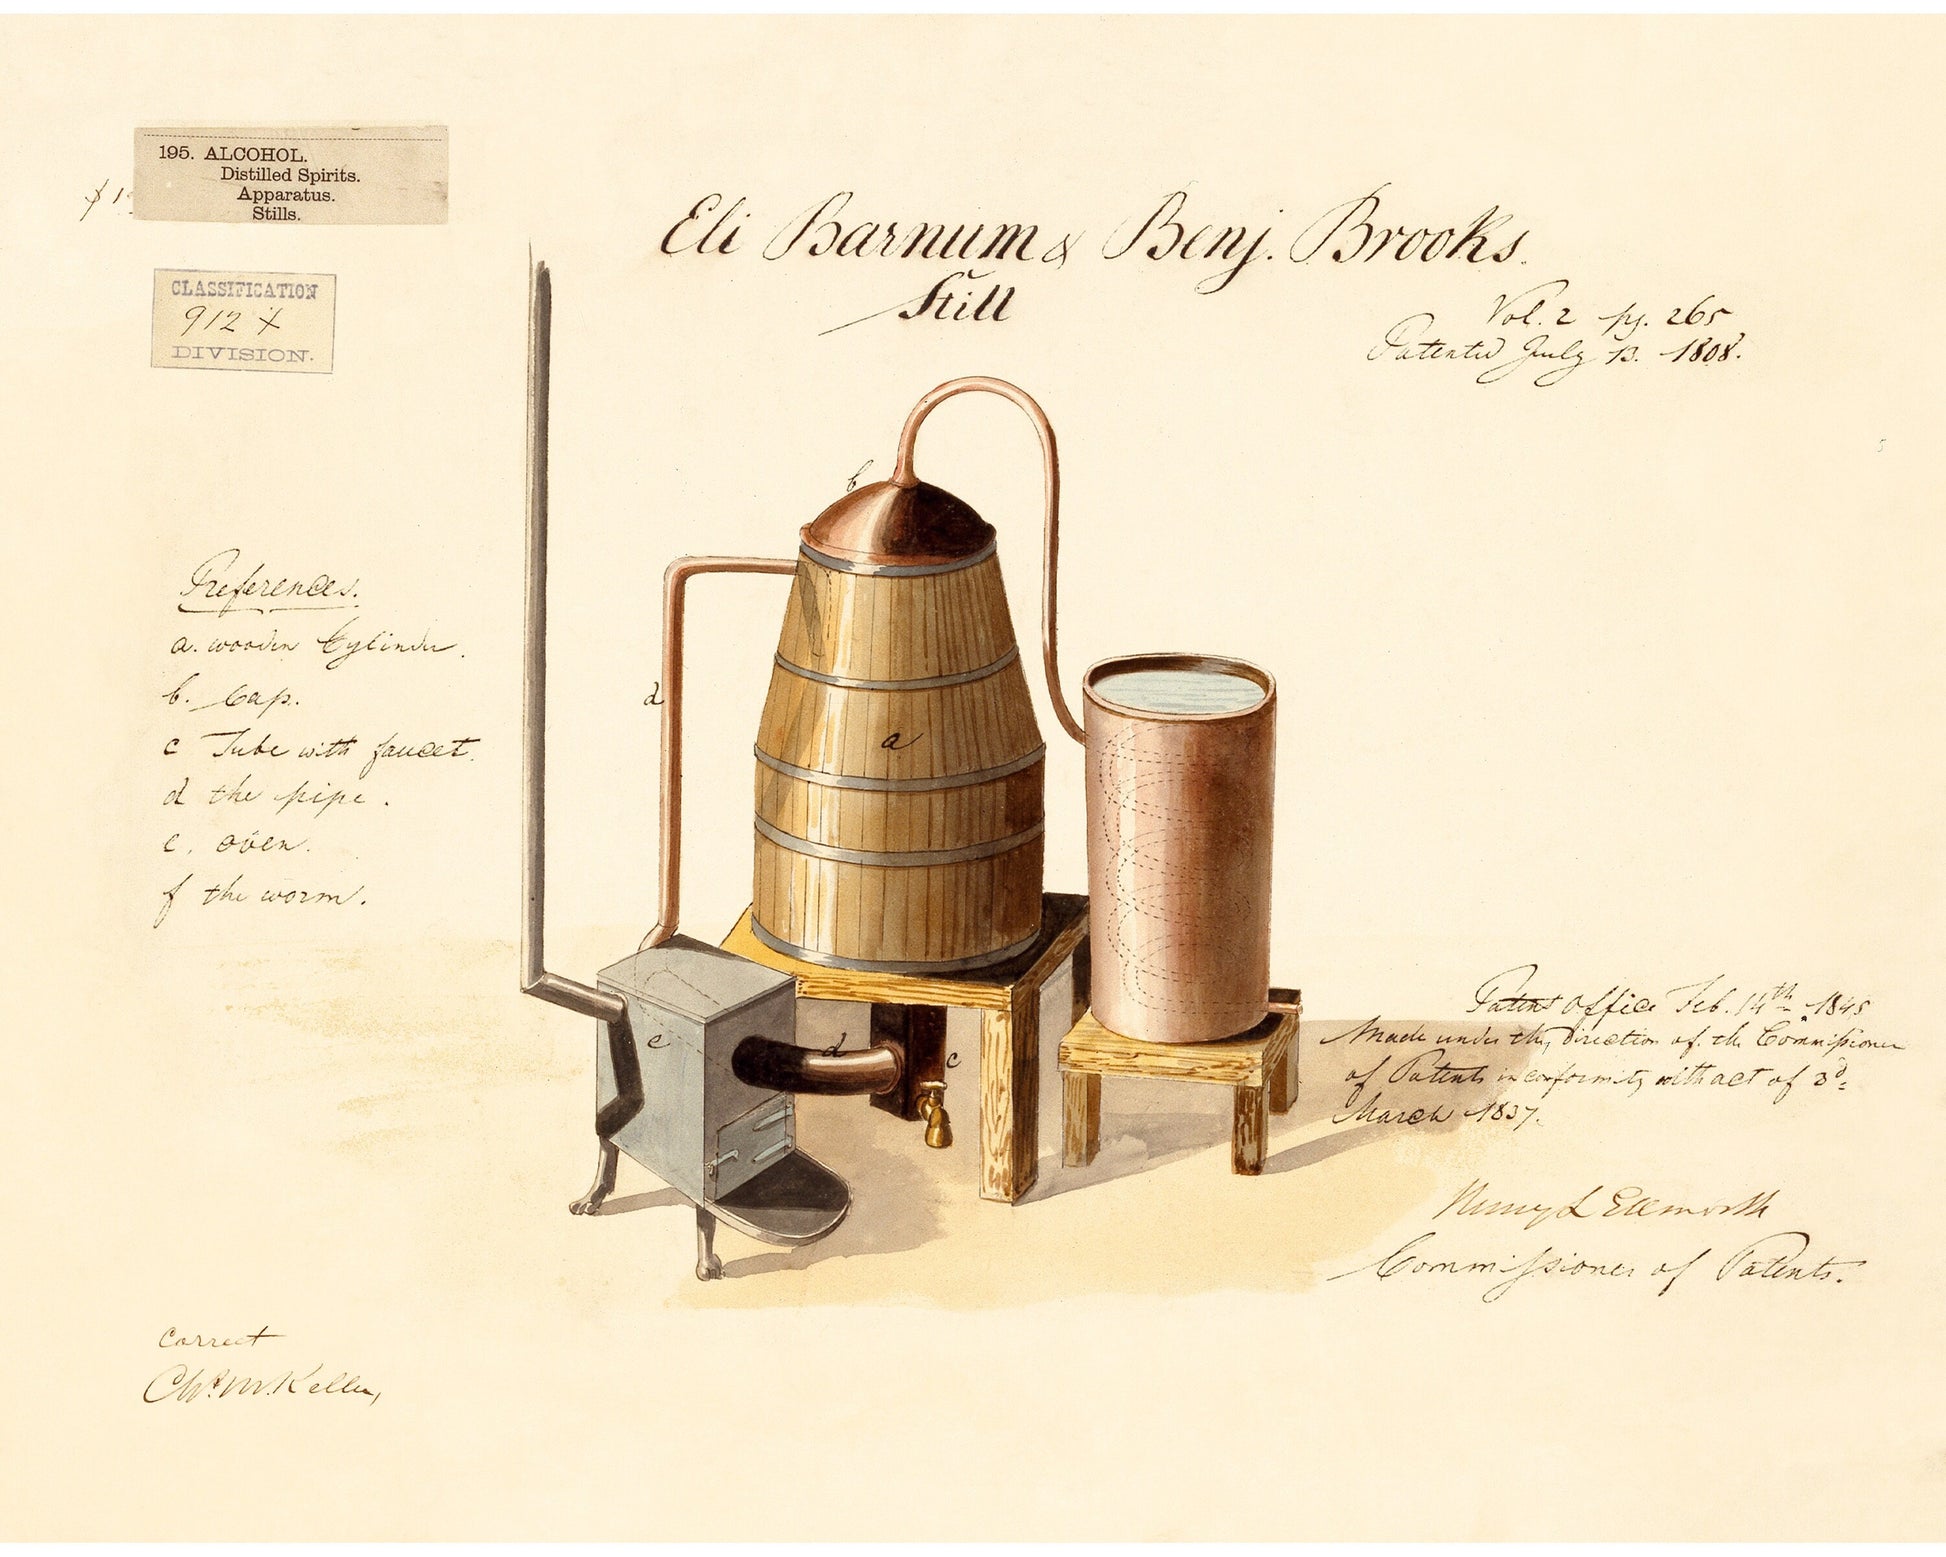 195. ALCOHOL.
Distilled Spirits.
Apparatus.
Stills.
CLASSIFICATION
912 X
DIVISION.
Eli Barnum & Benj. Brooks.
Still
Vol. 2 pg. 265
Patented July 13. 1808.
References.
a. wooden Cylinder.
b. Cap.
c Tube with faucet.
d the pipe.
e. oven.
f the worm.
b
d
a
e
d
c
Patent Office Feb. 14th 1845
Made under the direction of the Commissioner
of Patents in conformity with act of 3d
March 1837.
Henry L Ellsworth
Commissioner of Patents.
correct
Chs. M. Keller,